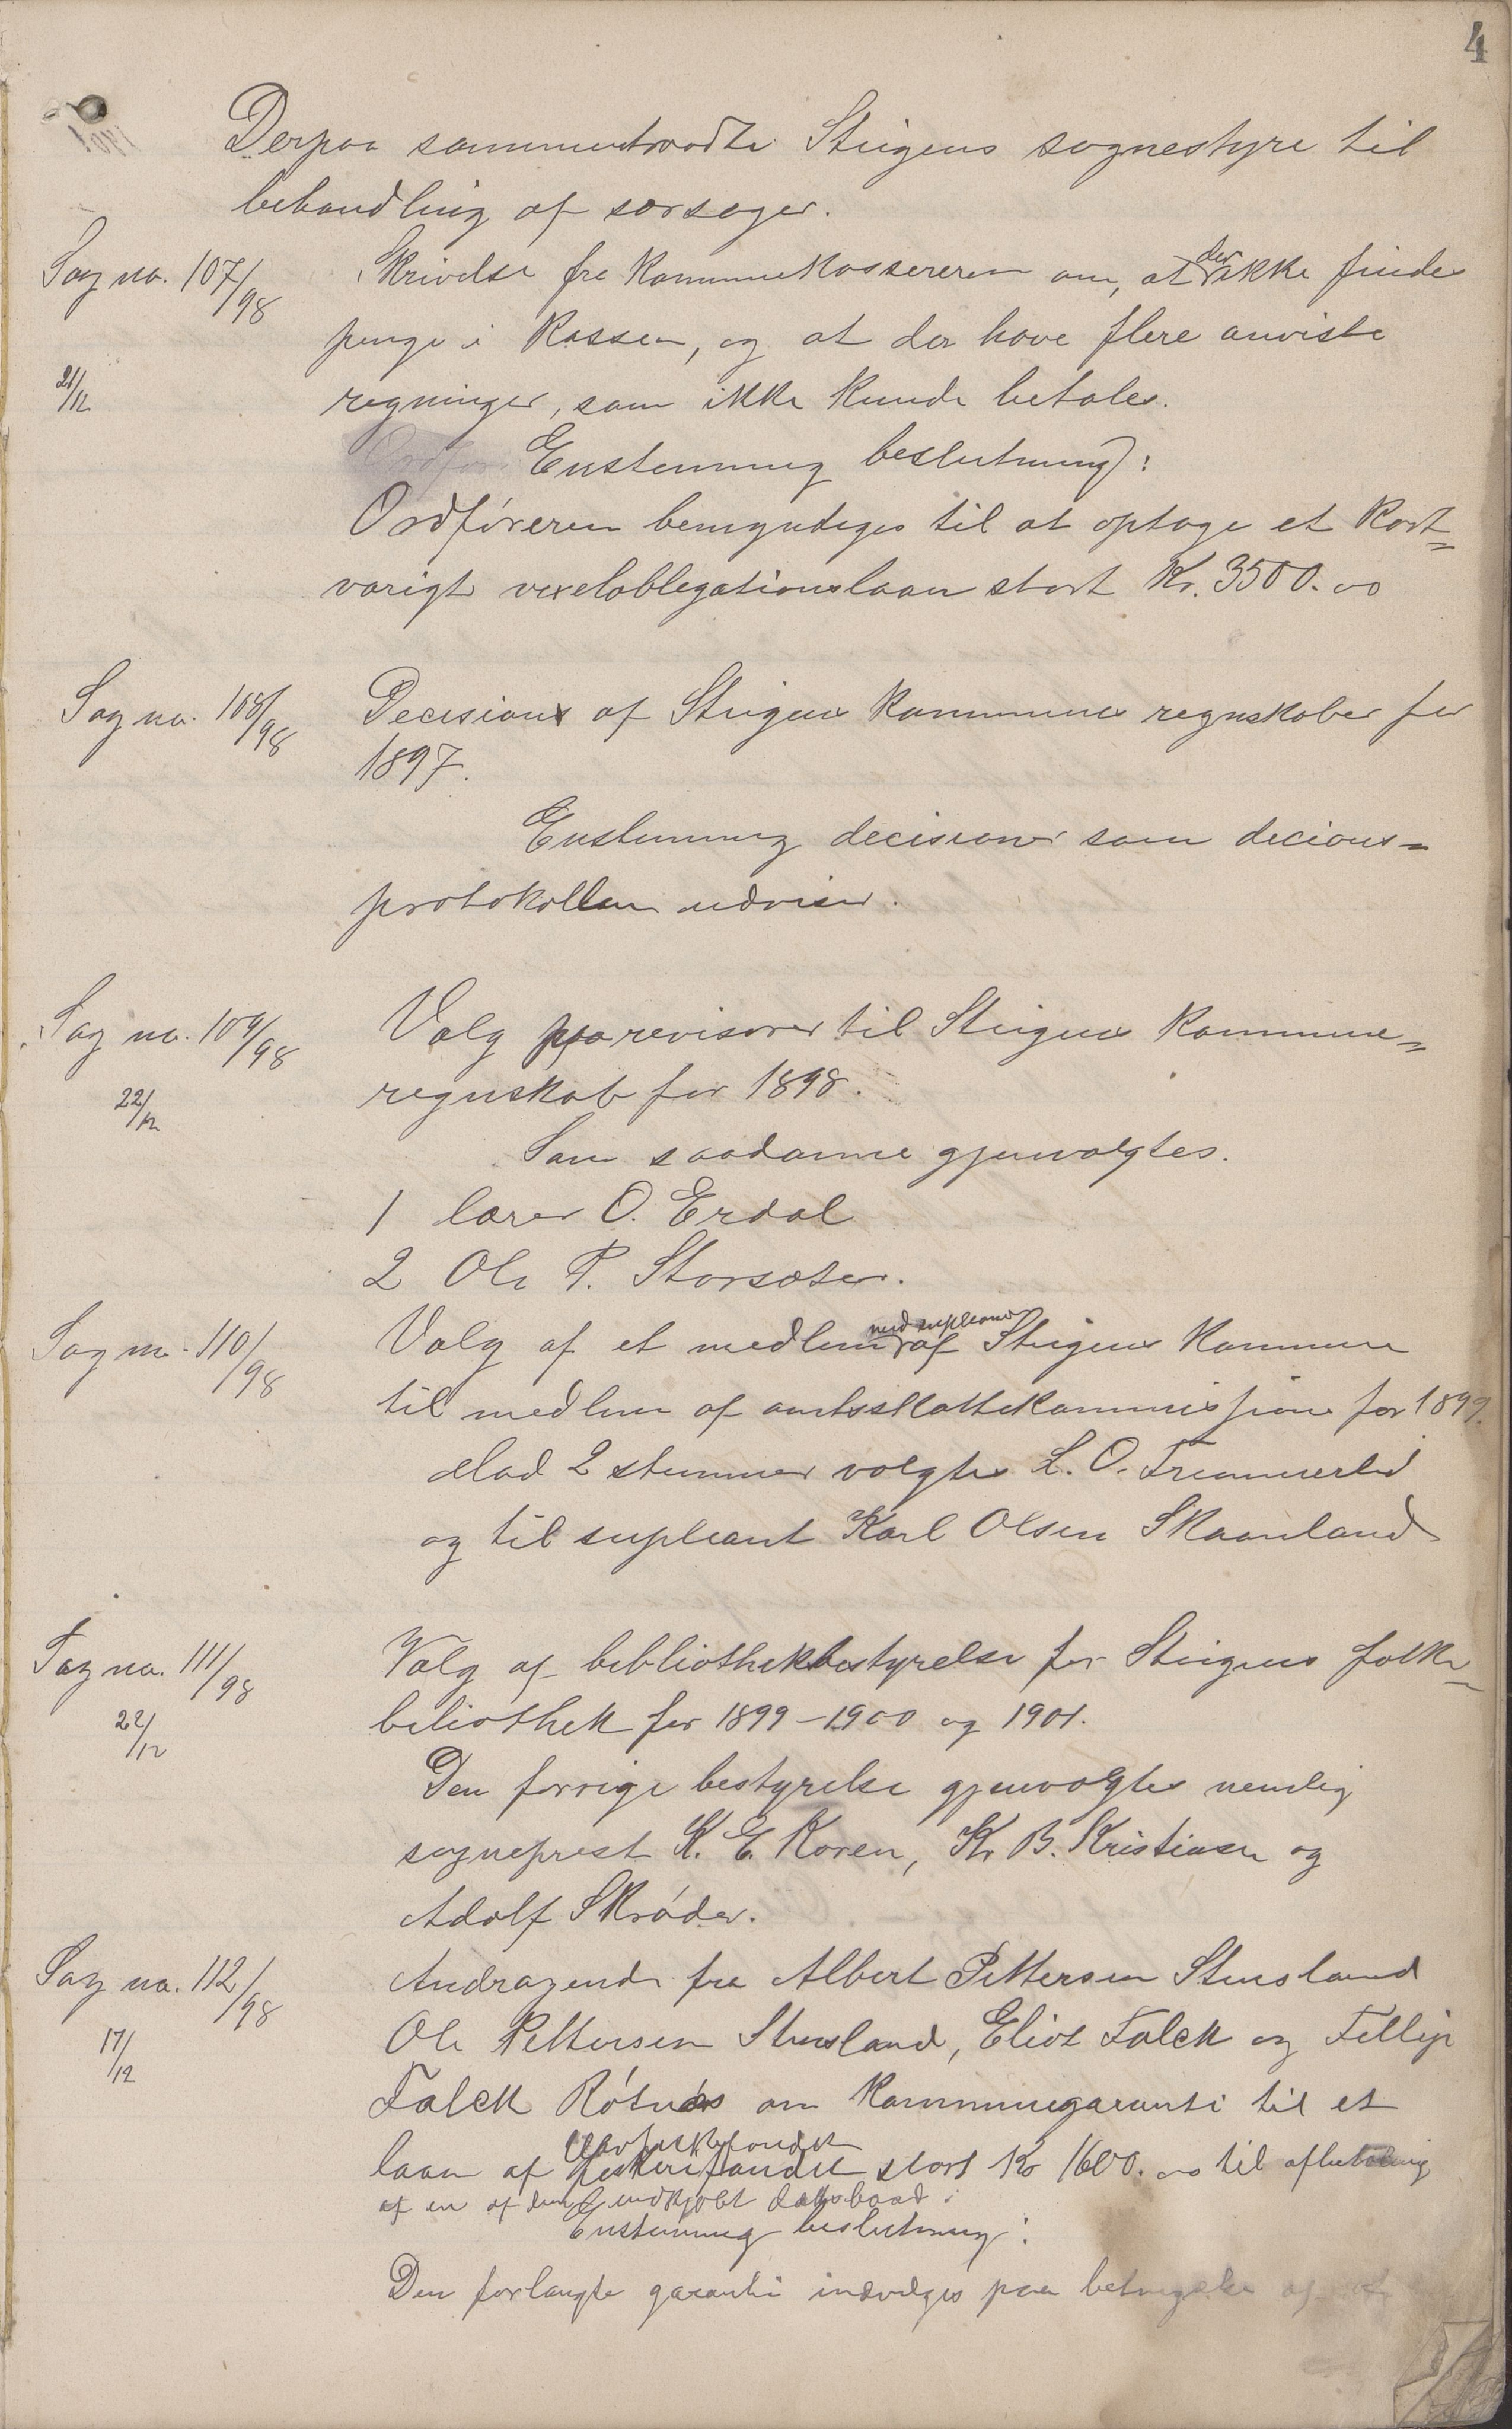 4
Derpaa sammentraadte Steigens sognestyre til
behandling af særsager.
Sag no. 107/98
Skrivelse fra kommunekassereren om, at der ikke findes
penge i kassen, og at der have flere anviste
21/12
regninger, som ikke kunde betales.
Enstemmig beslutning:
Ordføreren bemyndiges til at optage et kort=
varigt vexeloblegationslaan stort Kr. 3500.00
Sag no. 108/98
Decision af Steigens kommunes regnskaber for
1897.
Enstemmig decisioner som decions=
protokollen udviser.
Sag no. 109/98
Valg paa revisorer til Steigens kommune=
22/12
regnskab for 1898.
Som saadanne gjenvalgtes.
1 lærer O. Erdal
2 Ole P. Storsæter.
Sag no. 110/98
Valg af et medlem med supleant af Steigens kommune
til medlem af amtsskattekommissjonen for 1899.
Mod 2 stemmer valgtes L. O. Fremmerlid
og til supleant Karl Olsen Skaanland
Sag no. 111/98
Valg af bibliothekbestyrelse for Steigens folke=
22/12
beliothek for 1899-1900 og 1901.
Den forrige bestyrelse gjenvalgtes nemlig
sogneprest K. E. Koren, Kr B. Kristiansen og
Adolf Skrøder.
Sag no. 112/98
Andragende fra Albert Pettersen Stensland
17/12
Ole Pettersen Stensland, Eliot Falck og Fillip
Falck Røtnæs om kommunegaranti til et
laan af Havfiskefondet stort Kr 1600.00 til afbetaling
af en af dem indkjøbt dæksbaad:
Enstemmig beslutning:
Den forlangte garanti indvilges paa betingelse af at